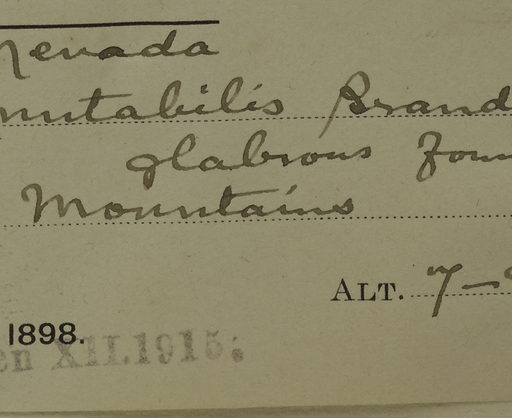 Nevada
mutabilis Brand
glabrous form
Mountains
ALT. 7-
1898.
en XII.1915.